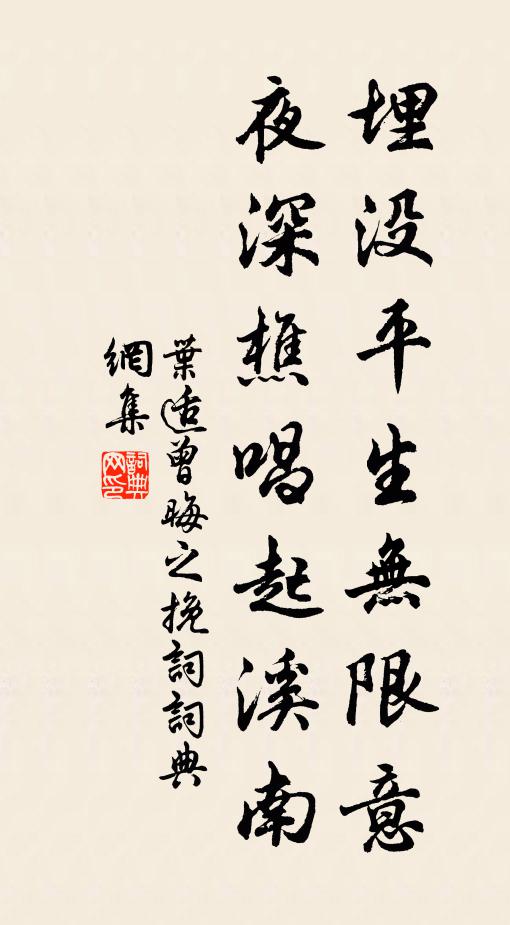 埋没平生無限意
夜深樵唱起溪南
葉适曾晦之挽詞詞典
網集
詞典
网印